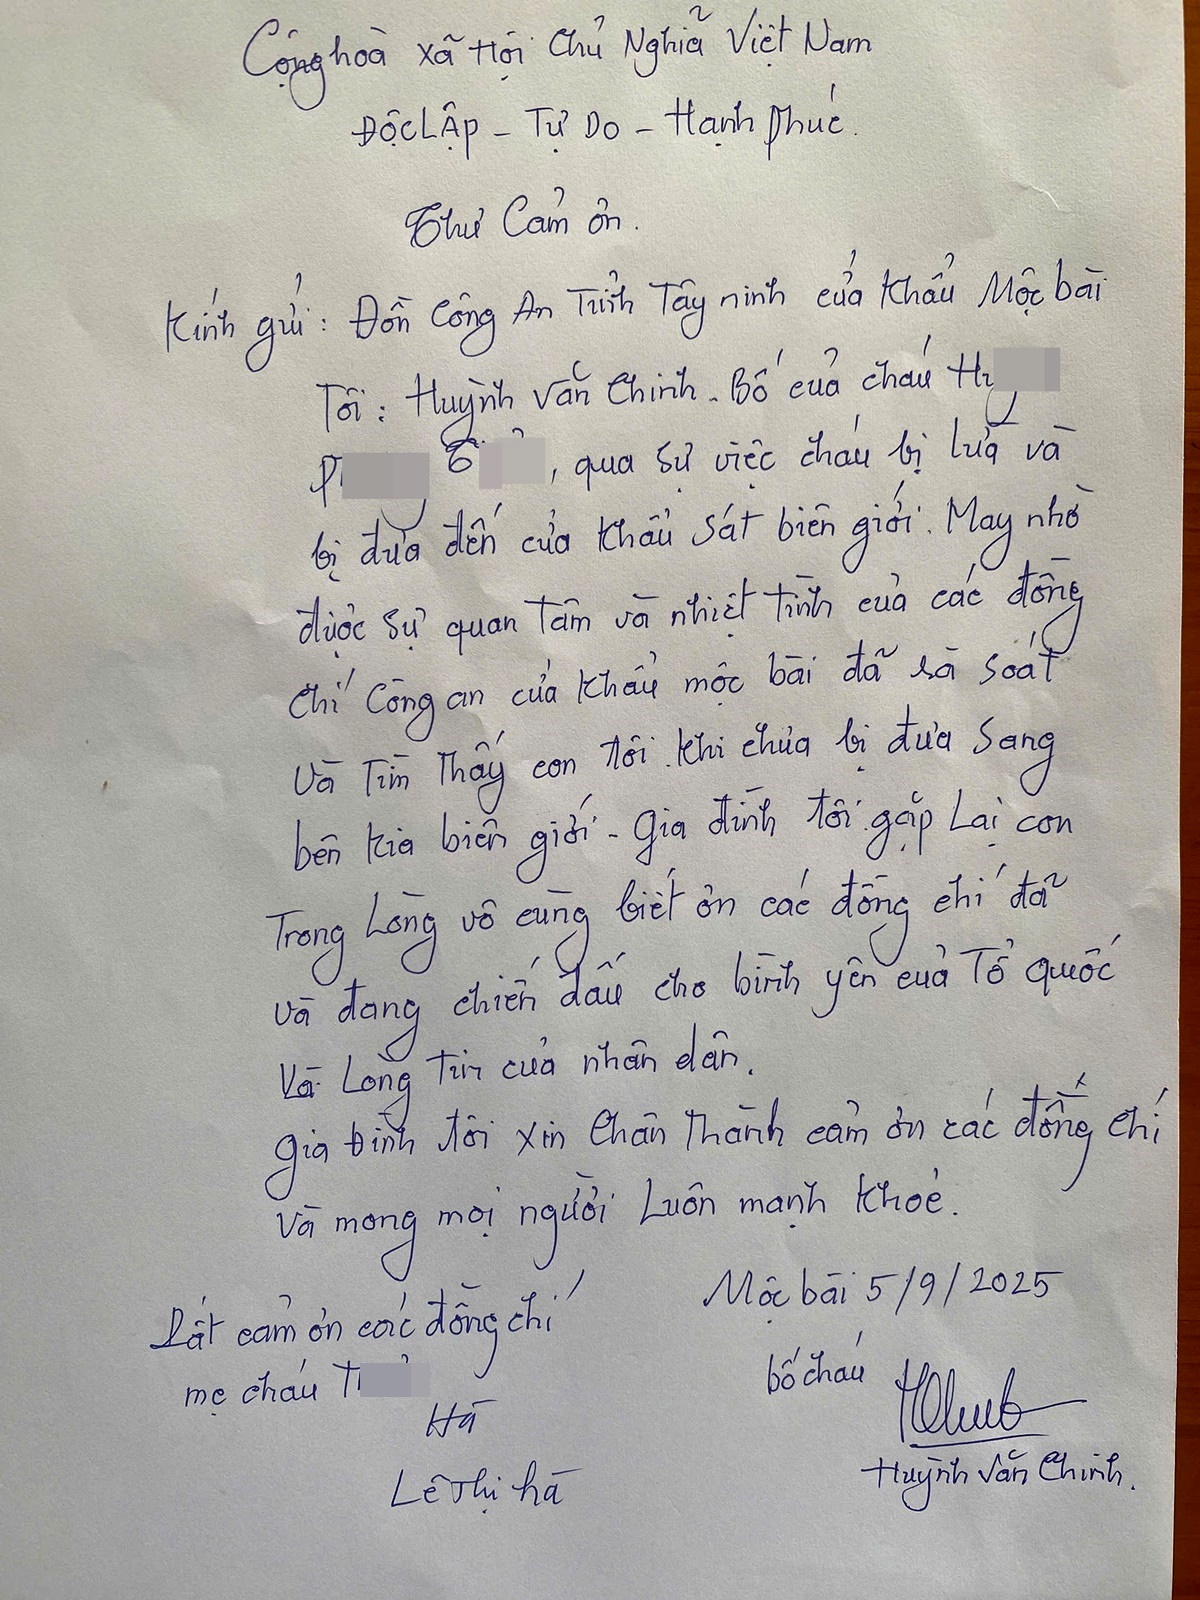 Cộng hoà xã Hội Chủ Nghĩa Việt Nam
Độc Lập - Tự Do - Hạnh phúc.
Thư Cảm ơn.
Kính gửi: Đồn Công An Tỉnh Tây ninh cửa khẩu Mộc bài
Tôi: Huỳnh Văn Chinh. Bố của cháu
, qua sự việc cháu bị lừa và
bị đưa đến cửa khẩu sát biên giới. May nhờ
được sự quan tâm và nhiệt tình của các đồng
chí công an cửa khẩu mộc bài đã rà soát
và tìm thấy con tôi khi chưa bị đưa sang
bên kia biên giới - gia đình tôi gặp lại con
Trong Lòng vô cùng biết ơn các đồng chí đã
và đang chiến đấu cho bình yên của Tổ quốc
Và Lòng tin của nhân dân.
gia Đình tôi xin Chân thành cảm ơn các đồng chí
và mong mọi người Luôn mạnh khoẻ.
Mộc bài 5/9/2025
Rất cảm ơn các đồng chí
mẹ cháu
bố cháu
Hà
Lê Thị hà
Huỳnh Văn Chinh.